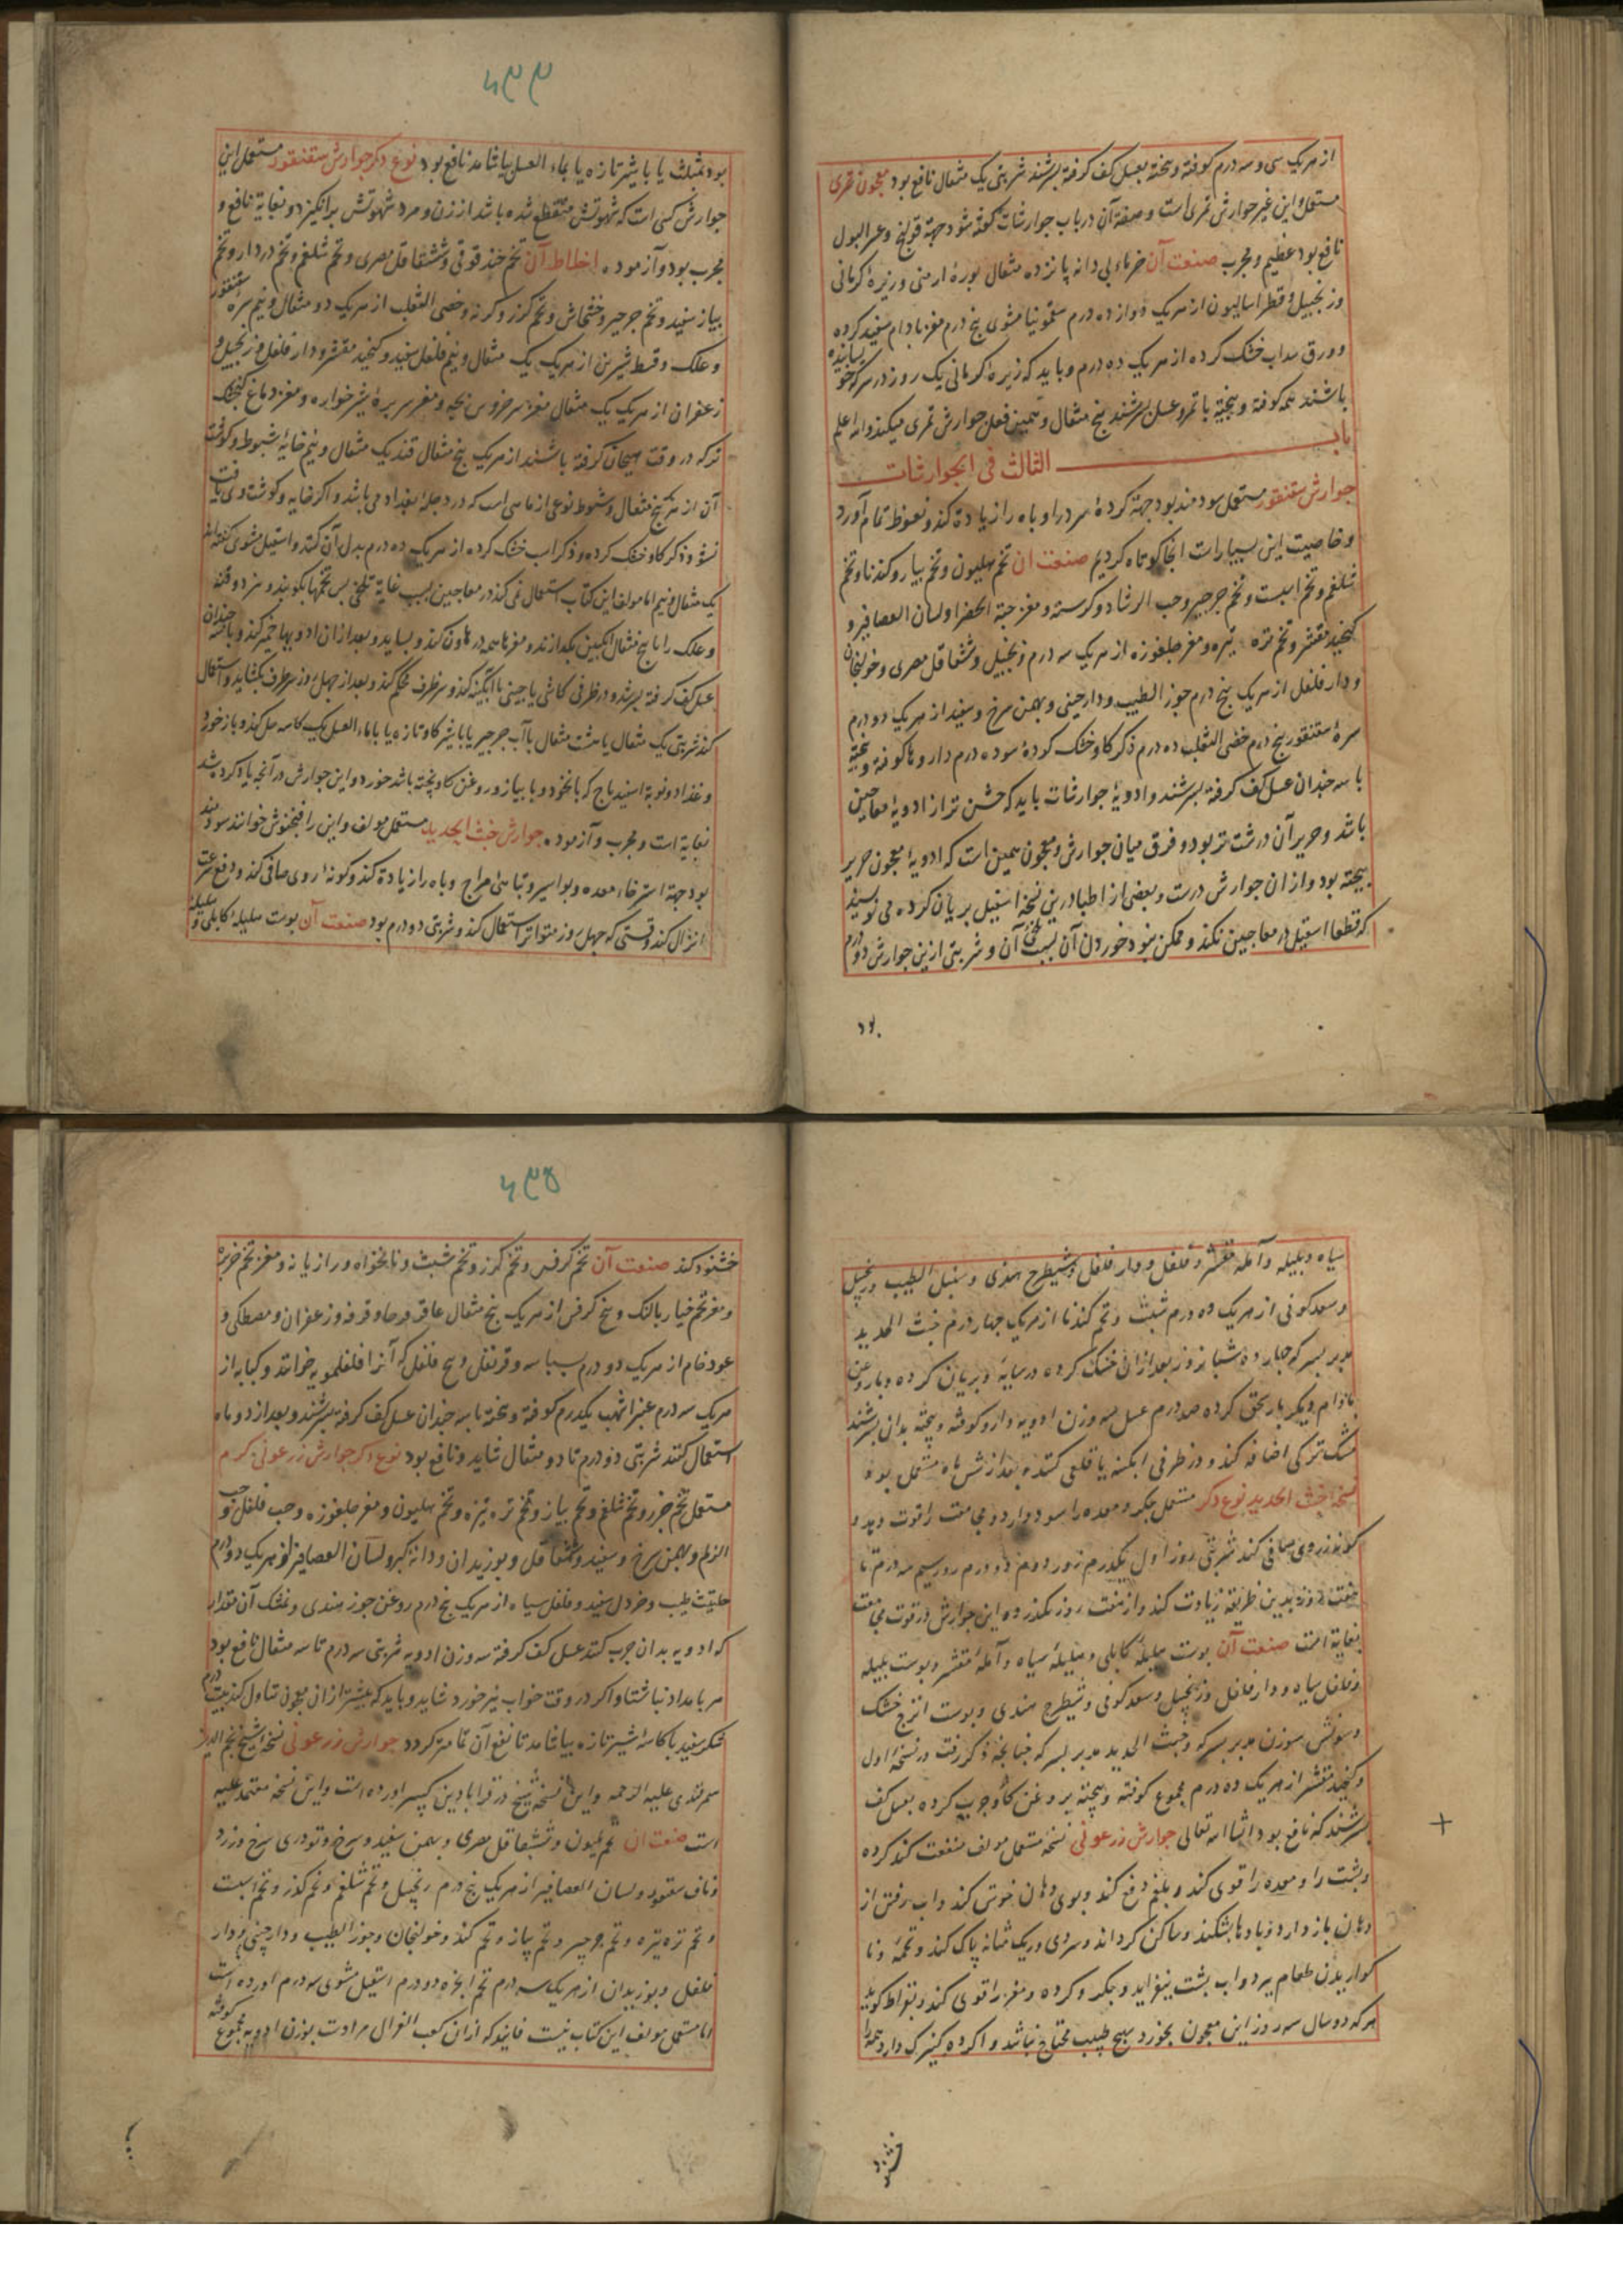 از هریک سی و سه درم کوفته و بیخته بعسل کف گرفته بسرشند شربتی یک مثقال نافع بود معجون تمری
مستعمل و این غیر جوارش تمری است و صفة آن در باب جوارشات گفته شود جهة قولنج و عسر البول
نافع بود عظیم و مجرب صنعت آن خرماء بی دانه پانزده مثقال بورهٔ ارمنی و زیرهٔ کرمانی
و زنجبیل و قطراسالیون از هریک دوازده درم سقمونیا مشوی پنج درم مغز بادام سفید کرده
و ورق سداب خشک کرده از هریک ده درم و باید که زیرهٔ کرمانی یک روز در سرکه خیسانیده
باشند همه کوفته و بیخته با تمر و عسل بسرشند پنج مثقال و همین فعل جوارش تمری میکند والله اعلم
باب الثالث فی الجوارشات
جوارش سقنقور مستعمل سودمند بود جهة گردهٔ سرد را و باه را زیادة کند و نعوظ تمام آورد
و خاصیت این بسیار است اینجا کوتاه کردیم صنعت ان تخم هلیون و تخم پیاز و کندنا و تخم
شلغم و تخم اسبست و تخم جرجیر و حب الرشاد و کرسنه و مغز حبة الخضرا و لسان العصافیر و
کنجید مقشر و تخم تره تیزه و مغز جلغوزه از هریک سه درم زنجبیل و شقاقل مصری و خولنجان
و دار فلفل از هریک پنج درم جوز الطیب و دارچینی و بهمن سرخ و سفید از هریک دو درم
سرهٔ سقنقور پنج درم خصی الثعلب ده درم ذکر گاو خشک کردهٔ سوده ده درم داروها کوفته و بیخته
با سه چندان عسل کف گرفته بسرشند و ادویهٔ جوارشات باید که خشن تر از ادویهٔ معاجین
باشد و حریر آن درشت تر بود و فرق میان جوارش و معجون همین است که ادویهٔ معجون حریر
بیخته بود و از ان جوارش درست و بعضی از اطبا درین نسخه اسقیل بریان کرده می نویسند
که قطعا اسقیل در معاجین نکند و ممکن نبود خوردن آن بسبب تلخی آن و شربتی ازین جوارش دو درم
بود
۴۹۴
بود بمثلث یا با شیر تازه یا بماء العسل بیاشامد نافع بود نوع دکر جوارش سقنقور مستعمل این
جوارش کسی است که شهوتش منقطع شده باشد از زن و مرد شهوتش برانگیزد و بغایة نافع و
مجرب بود و آزموده اخلاط آن تخم خندقوقی و شقاقل مصری و تخم شلغم و تخم دردار و تخم
پیاز سفید و تخم جرجیر و خشخاش و تخم گزر و کرنه و خصی الثعلب از هریک دو مثقال و نیم سره سقنقور
و علک و قسط شیرین از هریک یک مثقال و نیم فلفل سفید و کنجید مقشر و دار فلفل و زنجبیل و
زعفران از هریک یک مثقال مغز سر خروس بچه و مغز سر برهٔ شیر خواره و مغز دماغ گنجشک
نر که در وقت هیجان گرفته باشند از هریک پنج مثقال قند یک مثقال و نیم خایهٔ شبوط و گوشت
آن از هر پنج مثقال و شبوط نوعی از ماهی است که در دجلهٔ بغداد می باشد و اکر خایه و گوشت وی یافت
نشود ذکر گاو خشک کرده و ذکر اسب خشک کرده از هریک ده درم بدل آن کنند و اسقیل مشوی گفته اند
یک مثقال و نیم اما مولف این کتاب استعمال نمی کند در معاجین بسبب غایة تلخی بس تخمها بکوبند و بیزند و قند
و علک را با پنج مثقال انگبین بگدازند و مغزها همه در هاون کند و بساید و بعد از ان ادویها خمیر کند و با سه چندان
عسل کف گرفته بسرشد و در ظرفی کاشی یا چینی یا آبگینه کند و سر ظرف محکم کند و بعد از چهل روز سر ظرف بگشاید و استعمال
کند شربتی یک مثقال یا هشت مثقال بآب جرجیر یا با شیر گاو تازه یا بماء العسل یک کاسه حل کند و باز خورد
و غذا دو نوبة اسفیدباج که با نخود و با پیاز و روغن گاو پخته باشد خورد و این جوارش در آنچه یاد کرده شد
بغایة است و مجرب و آزموده جوارش خبث الحدید مستعمل مولف و این را فنجنوش خوانند سودمند
بود جهة استرخاء معده و بواسیر و تباهی مزاج و باه را زیادة کند و کونهٔ روی صافی کند و دفع سرعت
انزال کند وقتی که چهل روز متواتر استعمال کند و شربتی دو درم بود صنعت آن پوست هلیلهٔ کابلی و هلیلهٔ
سیاه و بلیله و آملهٔ مقشر و فلفل و دار فلفل و شیطرج هندی و سنبل الطیب و زنجبیل
و سعد کوفی از هریک ده درم شبث و تخم کندنا از هریک چهار درم خبث الحدید
مدبر بسرکه چهارده شبانروز بعد از ان خشک کرده در سایه و بریان کرده و بار وغن
بادام دیگر بار سحق کرده صد درم عسل سه وزن ادویه دارو کوفته و بیخته بدان بسرشند
مشک ترکی اضافه کند و در ظرفی ابکینه یا قلعی کنند و بعد از شش ماه مستعمل بود
نسخهٔ خبث الحدید نوع دکر مستعمل جگر و معده را سود دارد و مجامعت را قوت دهد و
کونهٔ روی صافی کند شربتی روز اول یکدرم روز دوم دو درم روز سیم سه درم تا
هفت روز بدین طریقه زیادت کند و از هفت روز نکذرد و این جوارش در قوت مجامعت
بغایة است صنعت آن پوست هلیلهٔ کابلی و هلیلهٔ سیاه و آملهٔ مقشر و پوست بلیله
و فلفل سیاه و دار فلفل و زنجبیل و سعد کوفی و شیطرج هندی و پوست اترج خشک
و سونش سوزن مدبر بسرکه و خبث الحدید مدبر بسرکه چنانچه ذکر رفت در نسخهٔ اول
و کنجید مقشر از هریک ده درم مجموع کوفته و بیخته بروغن گاو چرب کرده بعسل کف
بسرشند که نافع بود انشا الله تعالی جوارش زرعونی نسخهٔ مستعمل مولف منفعت کند گرده
و پشت را و معده را قوی کند و بلغم دفع کند و بوی دهان خوش کند و اب رفتن از
دهان باز دارد و بادها بشکند و ساکن گرداند و سردی و ریک مثانه پاک کند و تخمه و نا
گواریدن طعام ببرد و اب پشت بیفزاید و جگر و گرده و مغز را قوی کند و بقراط کوید
هر که دو سال سه روز این معجون بخورد بهیچ طبیب محتاج نباشد و اگر ده کنیزک دارد همه را
خشنود
۴۹۵
خشنود کند صنعت آن تخم کرفس و تخم گزر و تخم شبث و نانخواه و رازیانه و مغز تخم خربزه
و مغز تخم خیار بالنک و بیخ کرفس از هریک پنج مثقال عاقرقرحا و قرفه و زعفران و مصطکی و
عود خام از هریک دو درم بسباسه و قرنفل و بیخ فلفل که آنرا فلفلمویه خوانند و کبابه از
هریک سه درم عنبر اشهب یکدرم کوفته و بیخته با سه چندان عسل کف گرفته بسرشند و بعد از دو ماه
استعمال کنند شربتی دو درم تا دو مثقال شاید و نافع بود نوع دکر جوارش زرعونی گرم
مستعمل تخم جزر و تخم شلغم و تخم پیاز و تخم تره تیزه و تخم هلیون و مغز جلغوزه و حب فلفل و حب
الزلم و بهمن سرخ و سفید و شقاقل و بوزیدان و دانهٔ کبر و لسان العصافیر از هریک دو درم
حلتیت طیب و خردل سفید و فلفل سیاه از هریک پنج درم روغن جوز هندی و نمشک آن مقدار
که ادویه بدان چرب کنند عسل کف گرفته سه وزن ادویه شربتی سه درم تا سه مثقال نافع بود
هر بامداد ناشتا و اکر در وقت خواب نیز خورد شاید و باید که پیشتر از ان معجون تناول کند بیست درم
شکر سفید با کاسهٔ شیر تازه بیاشامد تا نفع آن تمامتر کردد جوارش زرعونی نسخهٔ شیخ نجم الدین
سمرقندی علیه الرحمه و این نسخه شیخ در قرابادین کبیر اورده است و این نسخه معتمد علیه
است صنعت ان تخم هلیون و شقاقل مصری و بهمن سفید و سرخ و تودری سرخ و زرد
و ناف سقنقور و لسان العصافیر از هریک پنج درم زنجبیل و تخم شلغم و تخم گذر و تخم اسبست
و تخم تره تیزه و تخم جرجیر و تخم پیاز و تخم کندنا و خولنجان و جوز الطیب و دارچینی و دار
فلفل و بوزیدان از هریک سه درم تخم انجره دو درم اسقیل مشوی سه درم اورده است
اما مستعمل مولف این کتاب نیست فانیذ که از ان کعب الغزال مرادست بوزن ادویه مجموع کوفته